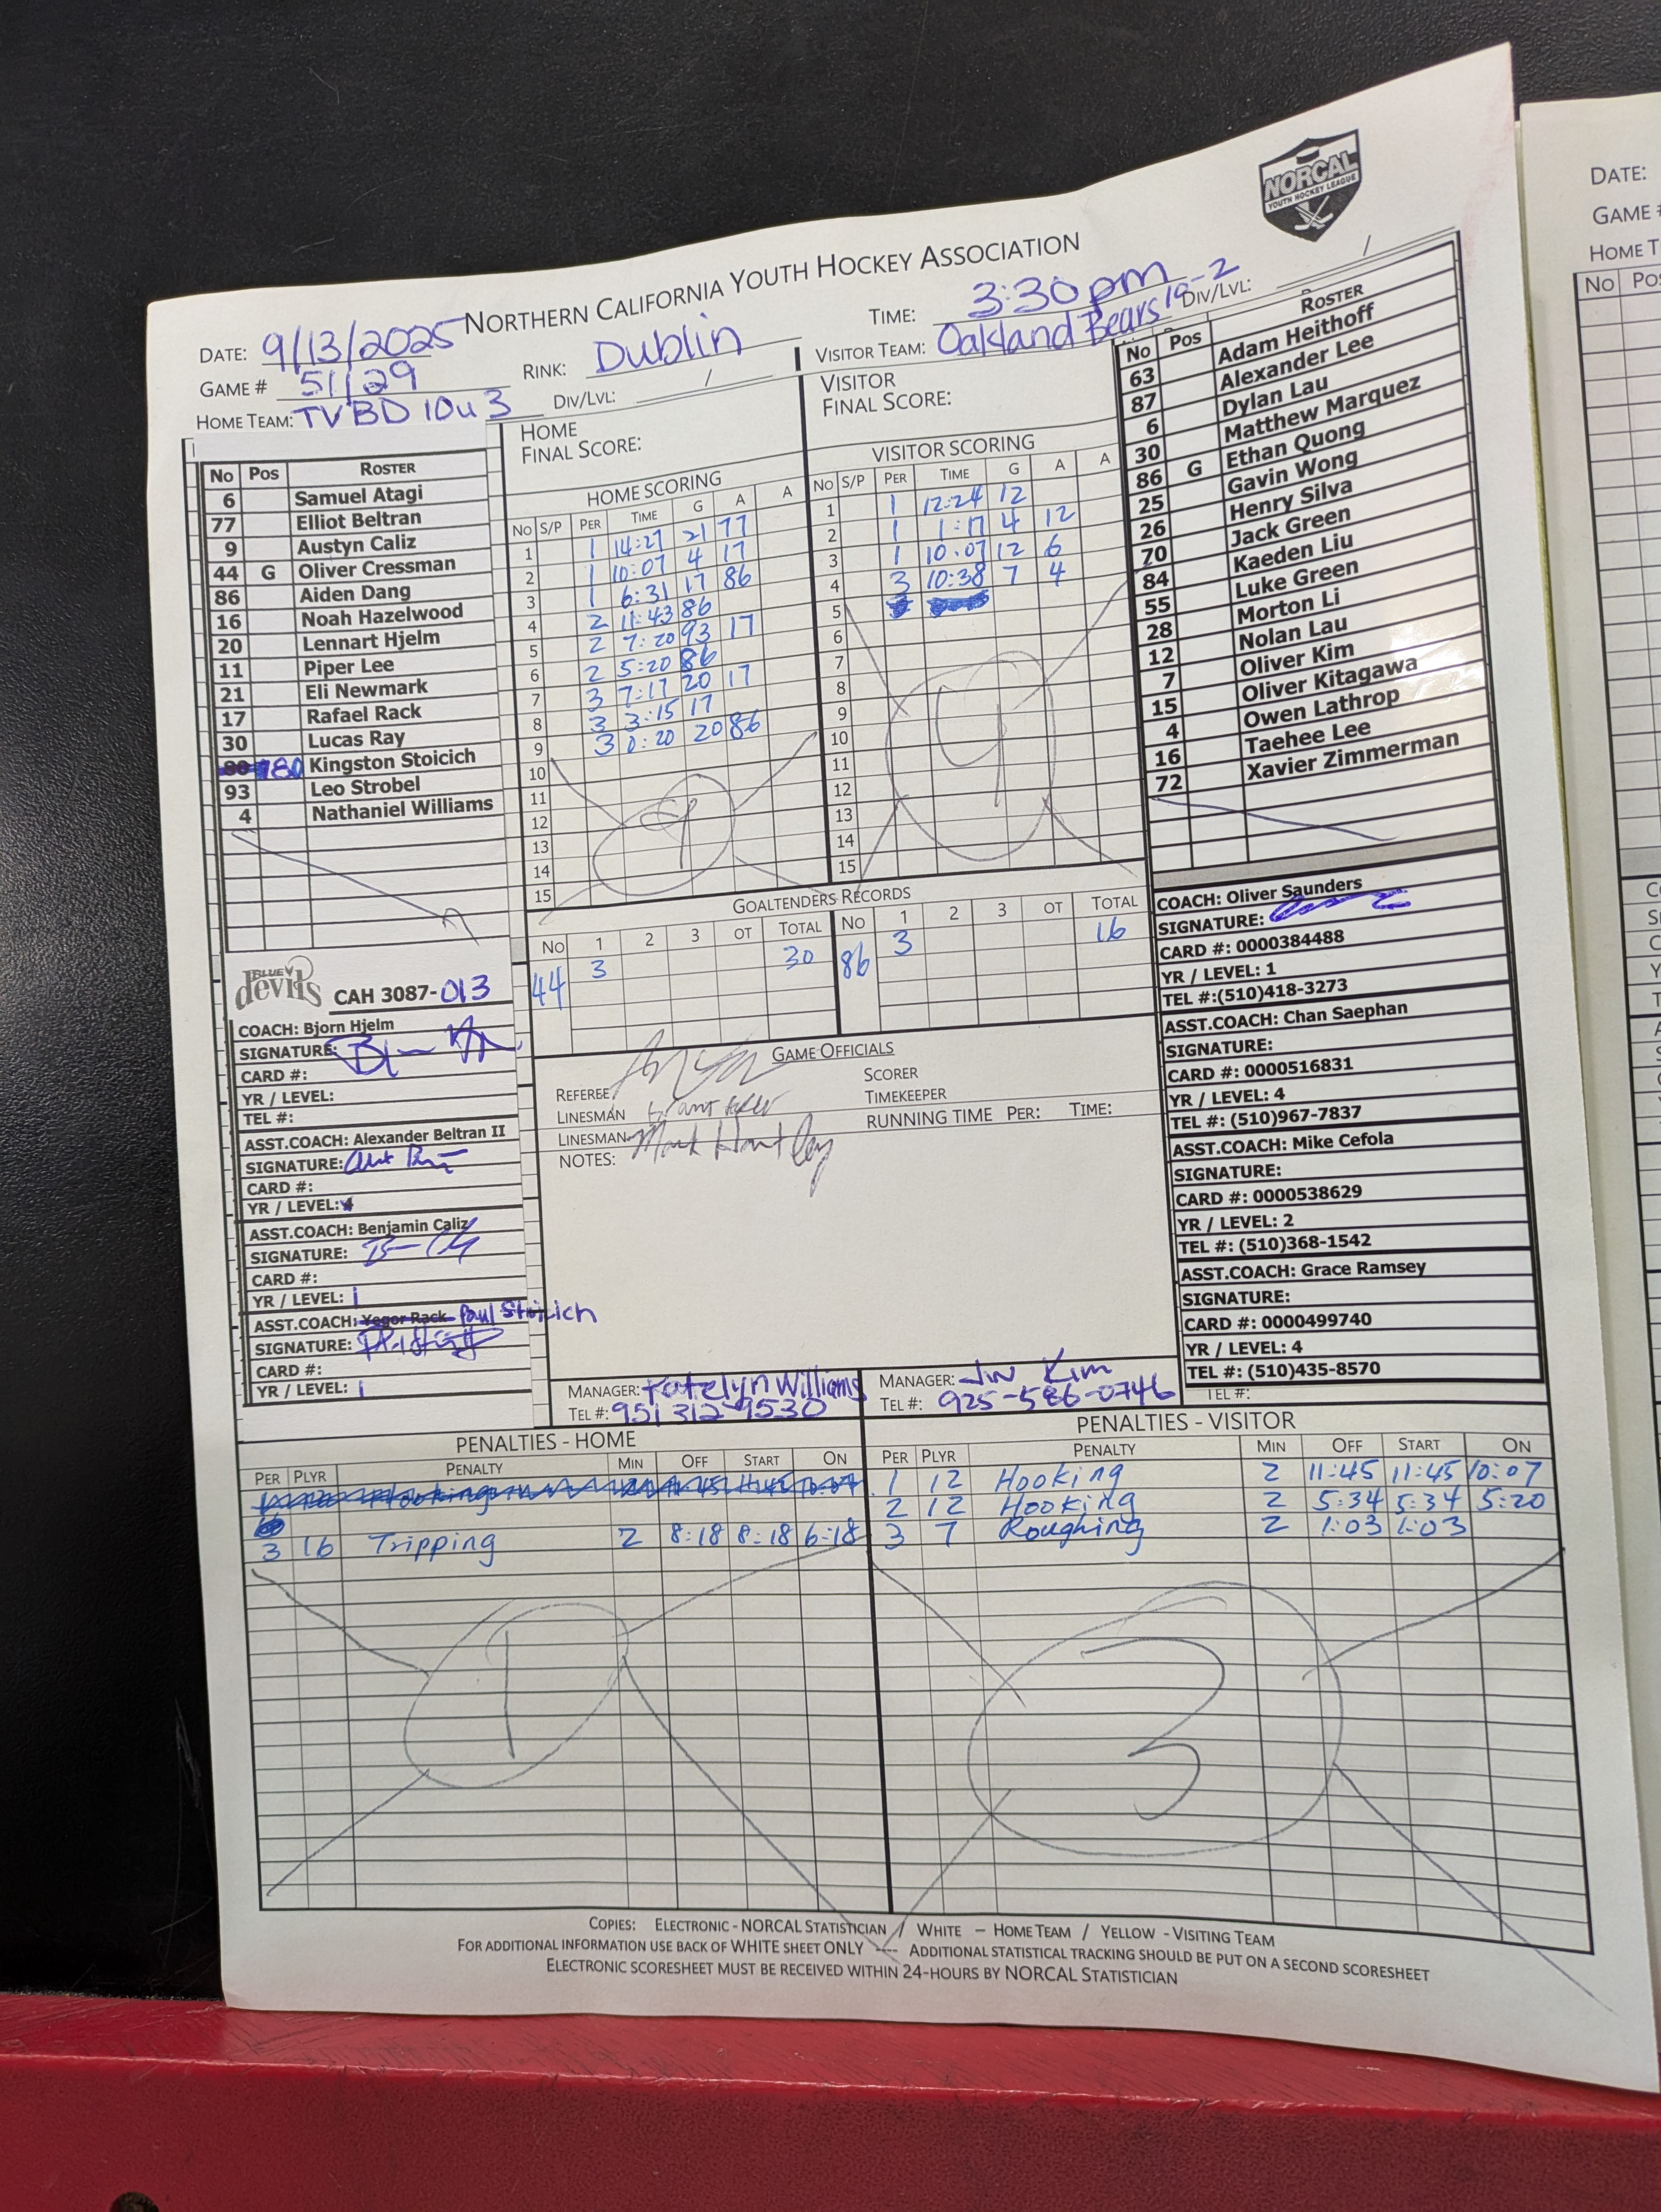 NORCAL
YOUTH HOCKEY LEAGUE
NORTHERN CALIFORNIA YOUTH HOCKEY ASSOCIATION
DATE: 9/13/2025
TIME: 3:30pm
GAME # 51/29
RINK: Dublin
VISITOR TEAM: Oakland Bears
DIV/LVL: /
HOME TEAM: TVBD 10u3
DIV/LVL: /
HOME
FINAL SCORE:
VISITOR
FINAL SCORE:
No Pos ROSTER
6 Samuel Atagi
77 Elliot Beltran
9 Austyn Caliz
44 G Oliver Cressman
86 Aiden Dang
16 Noah Hazelwood
20 Lennart Hjelm
11 Piper Lee
21 Eli Newmark
17 Rafael Rack
30 Lucas Ray
80 Kingston Stoicich
93 Leo Strobel
4 Nathaniel Williams
HOME SCORING
NO S/P PER TIME G A A
1 1 14:27 21 77
2 1 10:07 4 17
3 1 6:31 17 86
4 2 11:43 86
5 2 7:20 93 17
6 2 5:20 86
7 3 7:17 20 17
8 3 3:15 17
9 3 0:20 20 86
10
11
12
13
14
15
9
VISITOR SCORING
NO S/P PER TIME G A A
1 1 12:24 12
2 1 1:17 4 12
3 1 10:07 12 6
4 3 10:38 7 4
5
6
7
8
9
10
11
12
13
14
15
No Pos ROSTER
63 Adam Heithoff
87 Alexander Lee
6 Dylan Lau
30 Matthew Marquez
86 G Ethan Quong
25 Gavin Wong
26 Henry Silva
70 Jack Green
84 Kaeden Liu
55 Luke Green
28 Morton Li
12 Nolan Lau
7 Oliver Kim
15 Oliver Kitagawa
4 Owen Lathrop
16 Taehee Lee
72 Xavier Zimmerman
GOALTENDERS RECORDS
NO 1 2 3 OT TOTAL NO 1 2 3 OT TOTAL
44 3 30 86 3 16
BLUE devils CAH 3087-013
COACH: Bjorn Hjelm
SIGNATURE:
CARD #:
YR / LEVEL:
TEL #:
ASST.COACH: Alexander Beltran II
SIGNATURE:
CARD #:
YR / LEVEL: 4
ASST.COACH: Benjamin Caliz
SIGNATURE:
CARD #:
YR / LEVEL: 1
ASST.COACH: Yegor Rack Paul Stoicich
SIGNATURE:
CARD #:
YR / LEVEL: 1
GAME OFFICIALS
REFEREE
LINESMAN
LINESMAN Mark Hartley
NOTES:
SCORER
TIMEKEEPER
RUNNING TIME PER: TIME:
COACH: Oliver Saunders
SIGNATURE:
CARD #: 0000384488
YR / LEVEL: 1
TEL #:(510)418-3273
ASST.COACH: Chan Saephan
SIGNATURE:
CARD #: 0000516831
YR / LEVEL: 4
TEL #: (510)967-7837
ASST.COACH: Mike Cefola
SIGNATURE:
CARD #: 0000538629
YR / LEVEL: 2
TEL #: (510)368-1542
ASST.COACH: Grace Ramsey
SIGNATURE:
CARD #: 0000499740
YR / LEVEL: 4
TEL #: (510)435-8570
TEL #:
MANAGER: Katelyn Williams
TEL #: 951 312-9530
MANAGER: Jin Kim
TEL #: 925-586-0746
PENALTIES - HOME
PER PLYR PENALTY MIN OFF START ON
1 12 Hooking 2 11:45 11:45 10:07
3 16 Tripping 2 8:18 8:18 6:18
1
PENALTIES - VISITOR
PER PLYR PENALTY MIN OFF START ON
1 12 Hooking 2 11:45 11:45 10:07
2 12 Hooking 2 5:34 5:34 5:20
3 7 Roughing 2 1:03 1:03
3
COPIES: ELECTRONIC - NORCAL STATISTICIAN / WHITE – HOME TEAM / YELLOW - VISITING TEAM
FOR ADDITIONAL INFORMATION USE BACK OF WHITE SHEET ONLY ---- ADDITIONAL STATISTICAL TRACKING SHOULD BE PUT ON A SECOND SCORESHEET
ELECTRONIC SCORESHEET MUST BE RECEIVED WITHIN 24-HOURS BY NORCAL STATISTICIAN
DATE:
GAME #
HOME T
No Pos